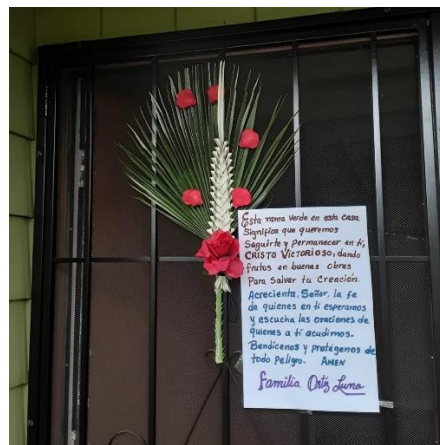 Esta rama verde en esta casa
Significa que queremos
Seguirte y permanecer en ti,
CRISTO VICTORIOSO, dando
frutos en buenas obras
Para Salvar tu Creación.
Acrecienta, Señor, la fe
de quienes en ti esperamos
y escucha las oraciones de
quienes a ti acudimos.
Bendícenos y protégenos de
todo peligro. AMEN
Familia Ortiz Luna